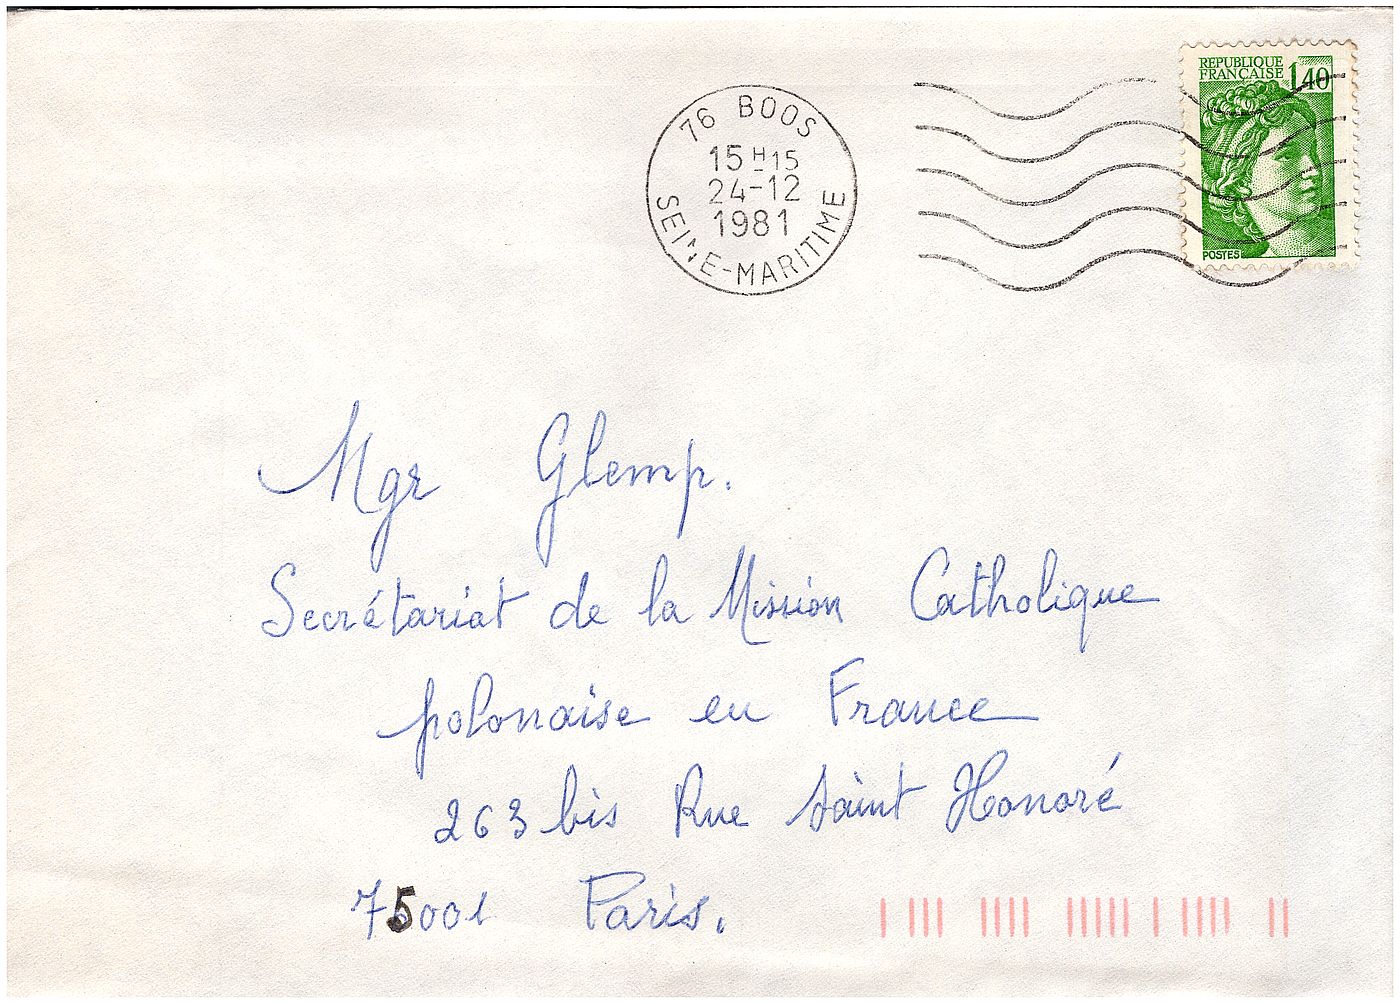 REPUBLIQUE
FRANÇAISE
1,40
POSTES
76 BOOS
15 H 15
24-12
1981
SEINE-MARITIME
Mgr Glemp.
Secrétariat de la Mission Catholique
polonaise en France
263 bis Rue Saint Honoré
75001 Paris.